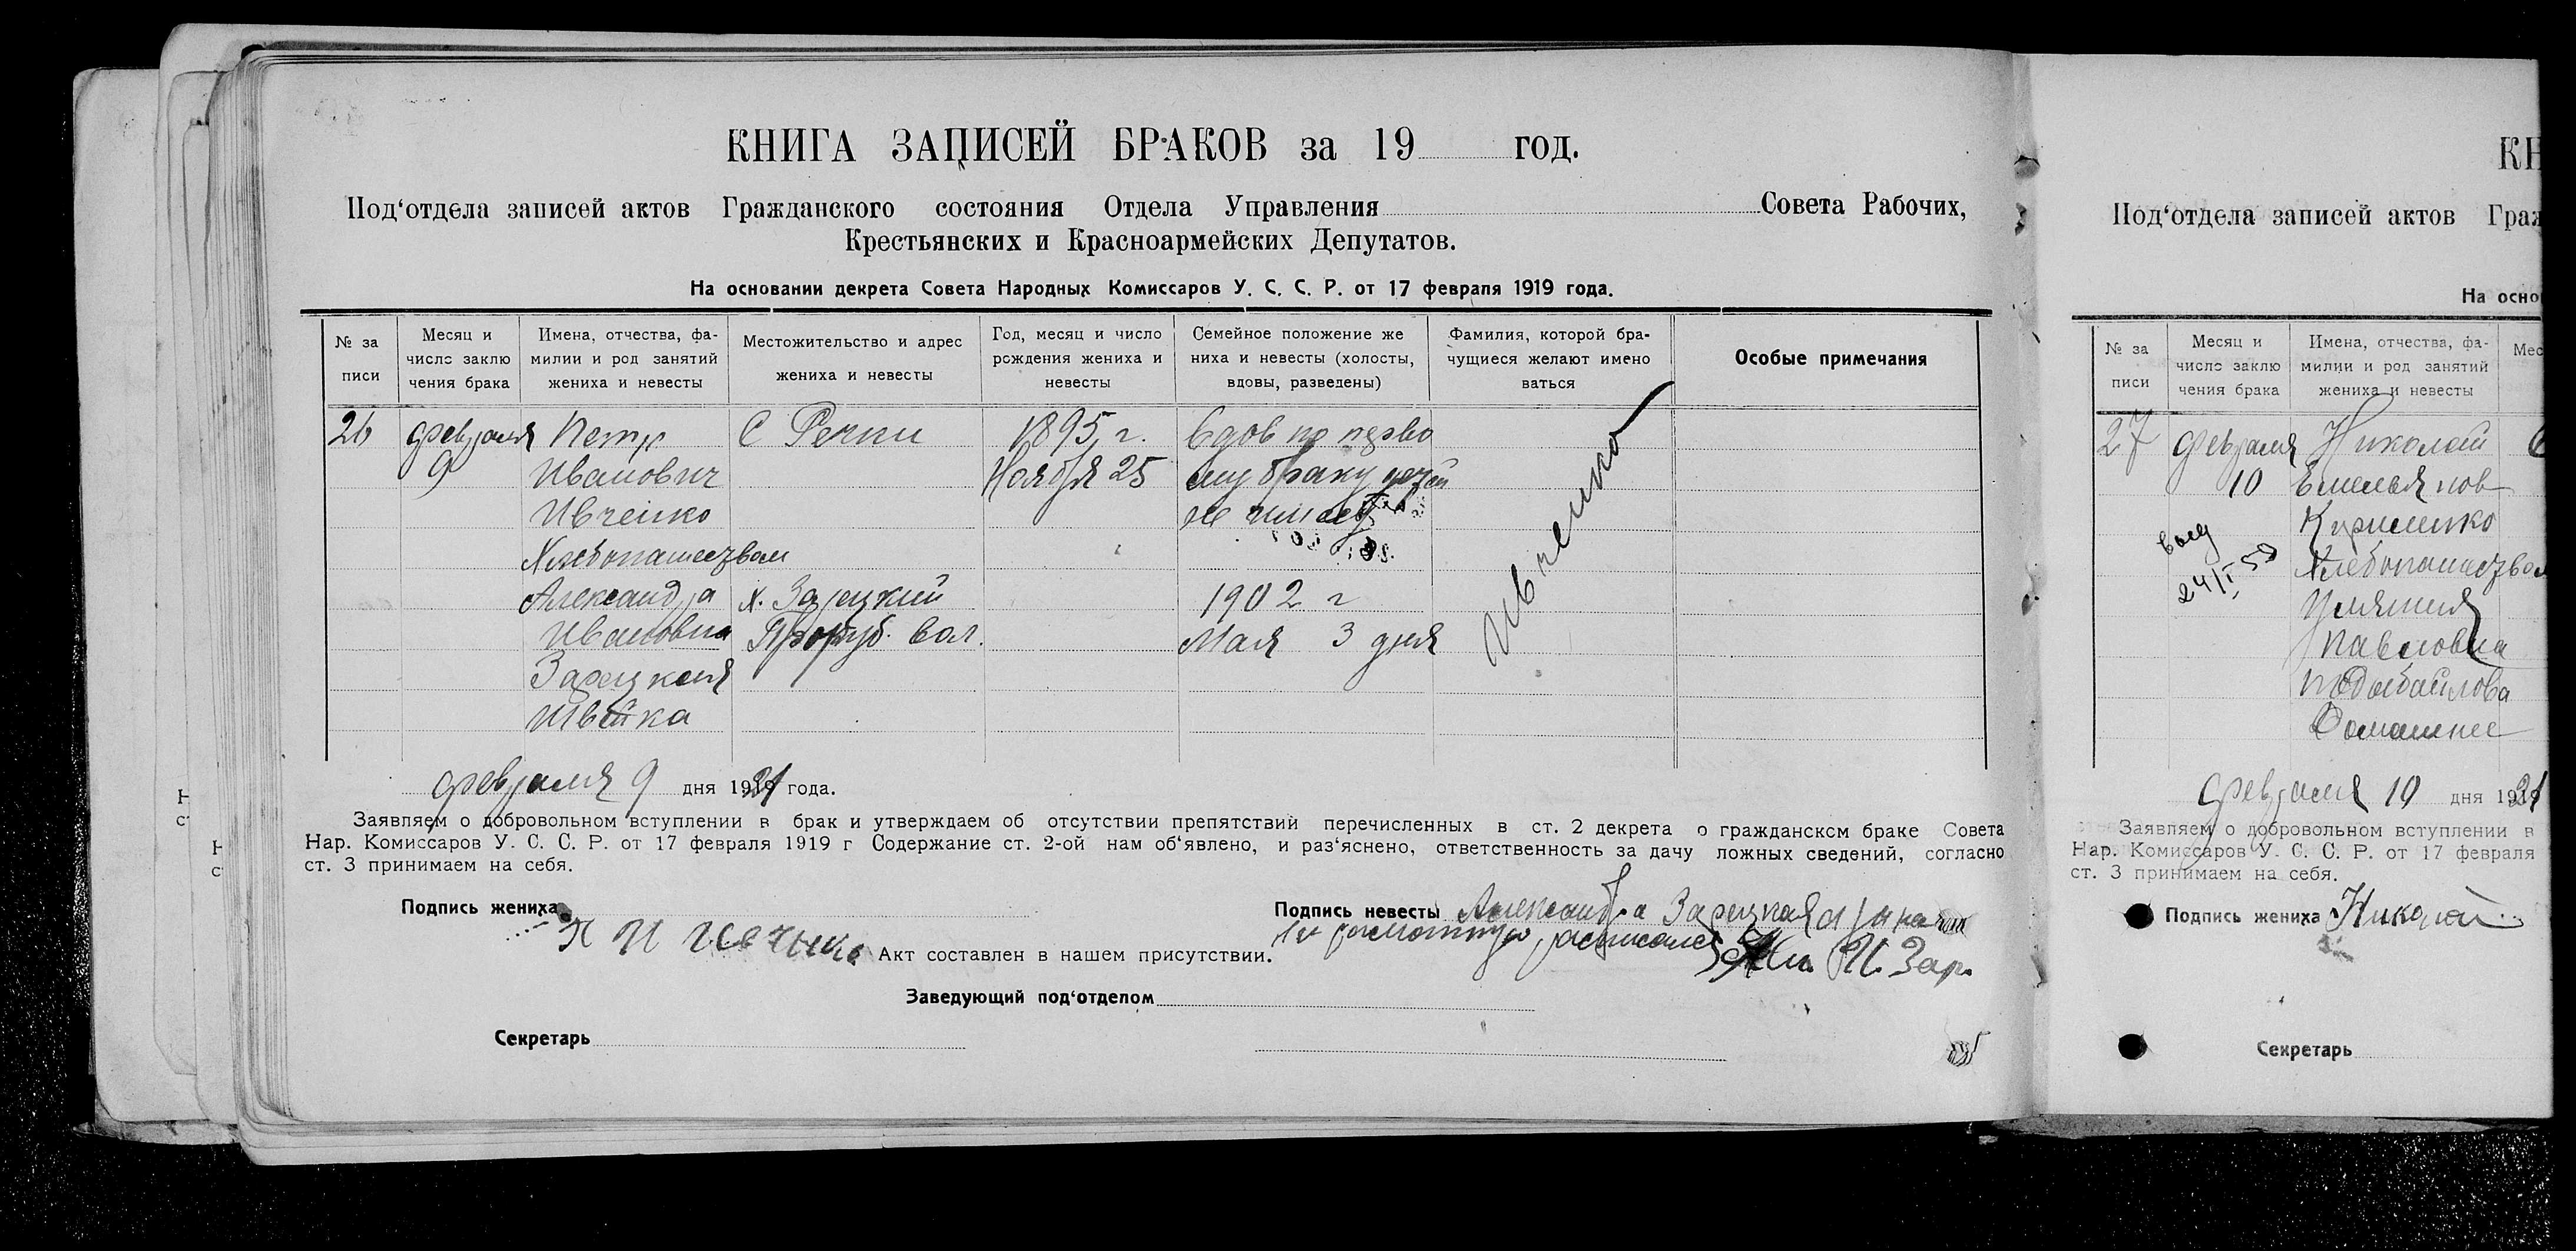 КНИГА ЗАПИСЕЙ БРАКОВ за 19 год.
Под‘отдела записей актов Гражданского состояния Отдела Управления Совета Рабочих,
Крестьянских и Красноармейских Депутатов.
На основании декрета Совета Народных Комиссаров У. С. С. Р. от 17 февраля 1919 года.
№ за писи
Месяц и число заклю чения брака
Имена, отчества, фамилии и род занятий жениха и невесты
Местожительство и адрес жениха и невесты
Год, месяц и число рождения жениха и невесты
Семейное положение же ниха и невесты (холосты, вдовы, разведены)
Фамилия, которой брачущиеся желают имено ваться
Особые примечания
26 февраля Петр С Речки 1895 г. вдов по перво
9 Иванович Ноября 25 му браку детей
Ивченко не имеет
Хлебопашеством
Ивченко
Александра х. Зарецкий 1902 г
Ивановна вол. Мая 3 дня
Зарецкая
Швейка
февраля 9 дня 1921 года.
Заявляем о добровольном вступлении в брак и утверждаем об отсутствии препятствий перечисленных в ст. 2 декрета о гражданском браке Совета
Нар. Комиссаров У. С. С. Р. от 17 февраля 1919 г Содержание ст. 2-ой нам об‘явлено, и раз‘яснено, ответственность за дачу ложных сведений, согласно
ст. 3 принимаем на себя.
Подпись жениха
Подпись невесты Александра Зарецкая
П И Ивченко Акт составлен в нашем присутствии.
расписался И. Зар.
Заведующий под‘отделом
Секретарь
КН
Под‘отдела записей актов Граж
На осно
№ за писи
Месяц и число заклю чения брака
Имена, отчества, фамилии и род занятий жениха и невесты
Мес
27 февраля Николай
10 Емельянов
Кириленко
24/I 59
Хлебопашество
Павловна
Домашнее
февраля 10 дня 1921
Заявляем о добровольном вступлении в
Нар. Комиссаров У. С. С. Р. от 17 февраля
ст. 3 принимаем на себя.
Подпись жениха Николай
Секретарь